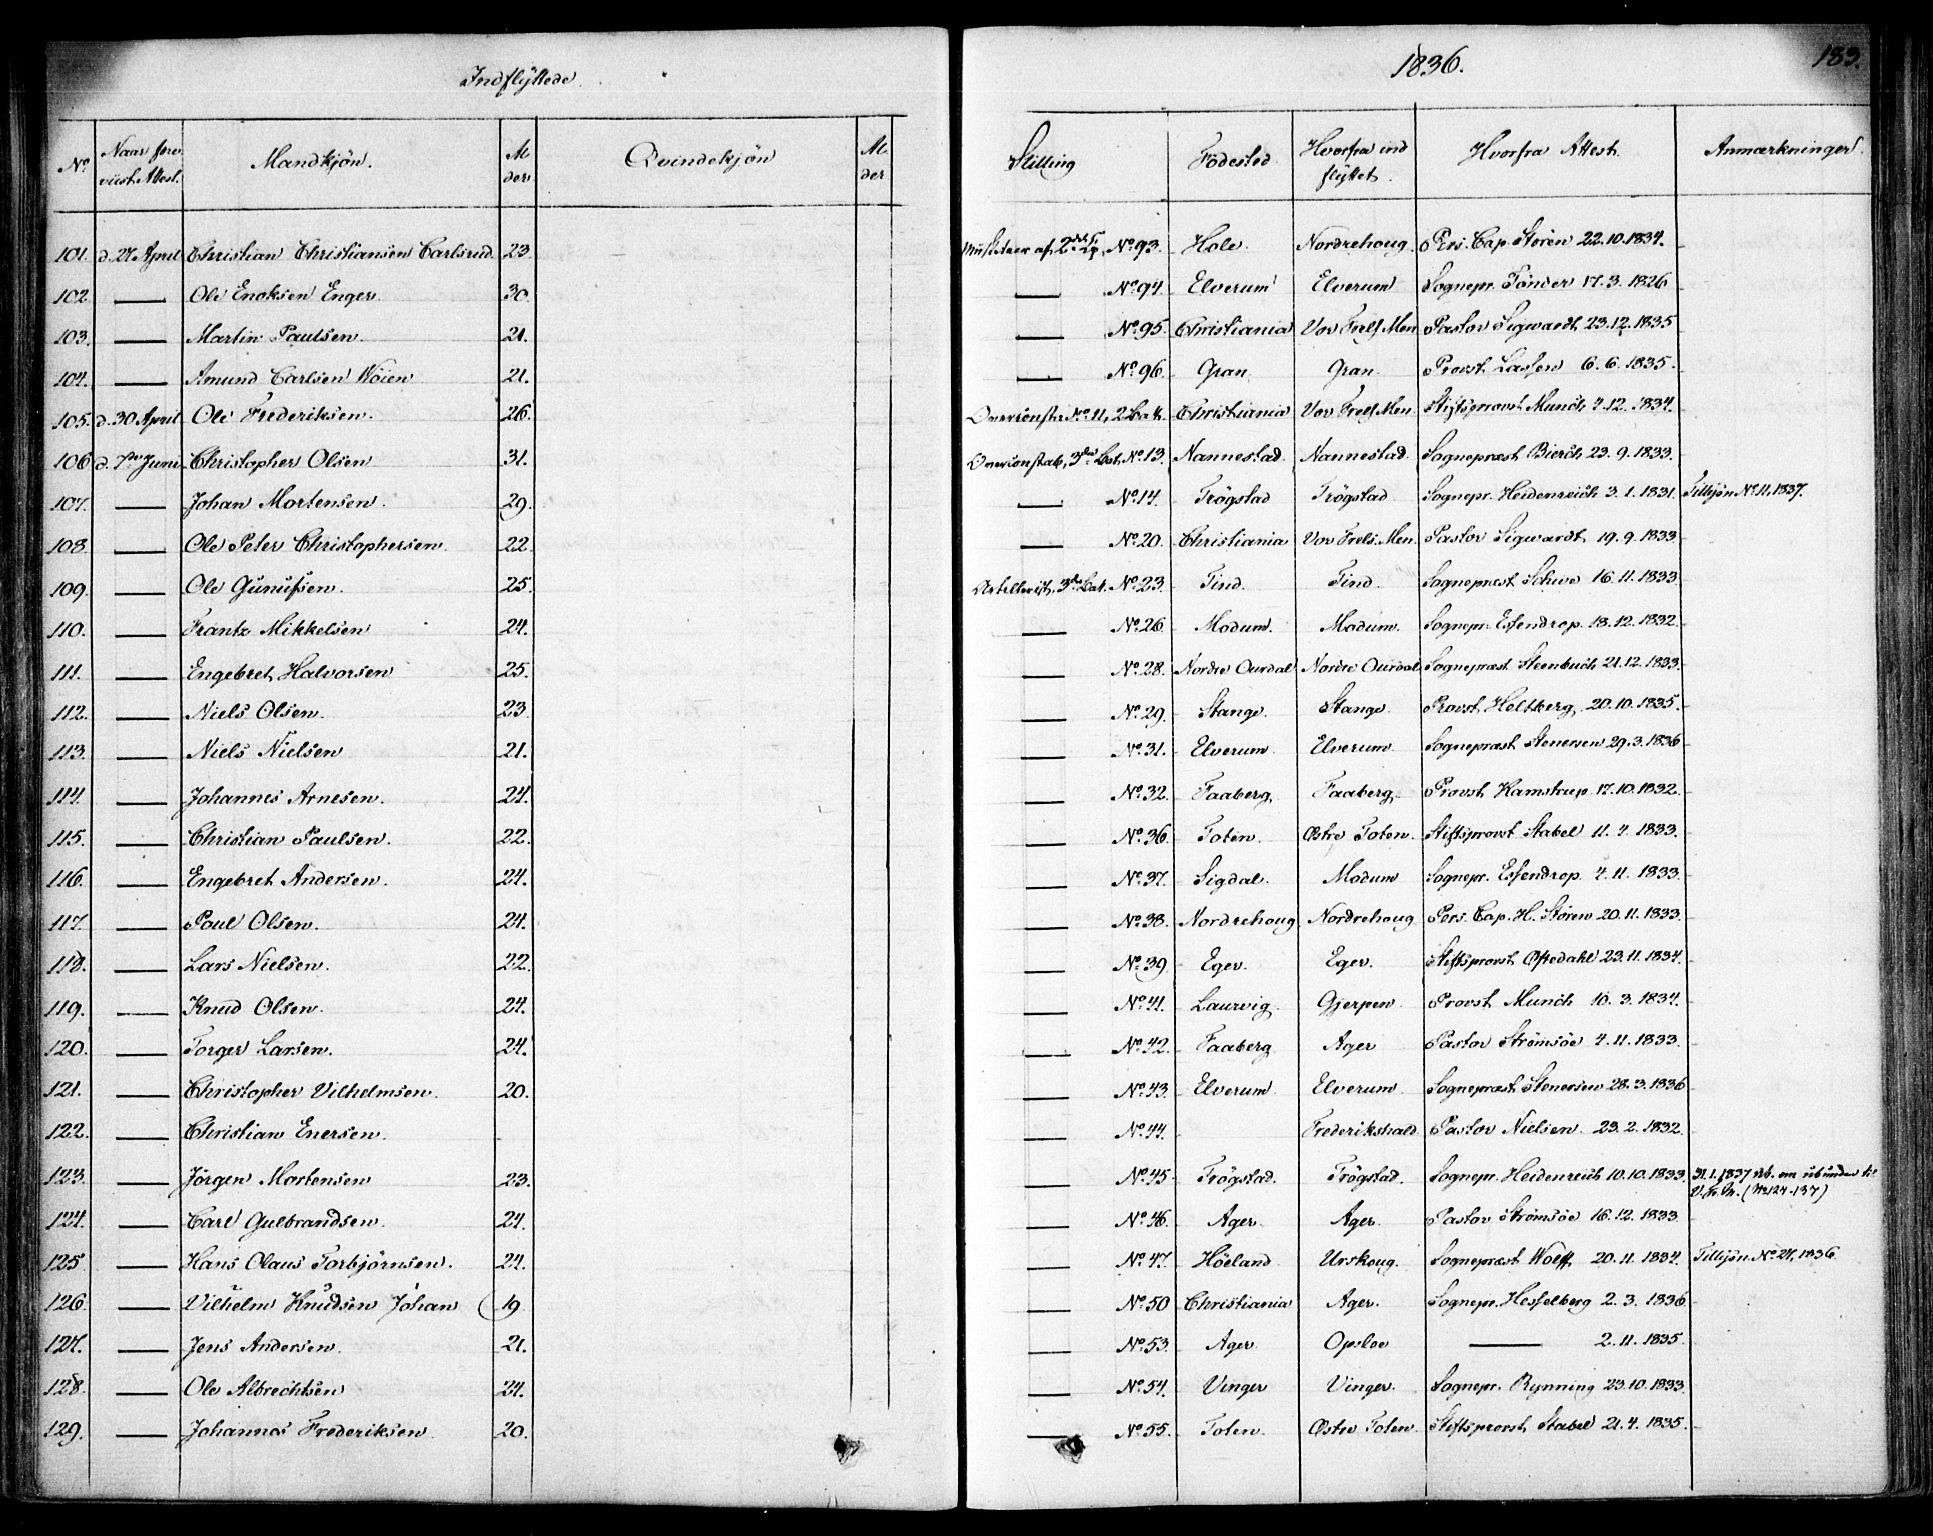 Indflyttede.
1836.
183.
No Naar fore viist Attest. Mandkjön. Al der Qvindekjön Al der Stilling Födested Hvorfra ind flyttet. Hvorfra Attest. Anmærkninger.
101. d. 27 April Christian Christiansen Carlsrud 23. Musketeer af 2det Cp. No 93. Hole Nordrehoug Pers. Cap. Stören 22.10.1834.
102 — Ole Enoksen Enger 30. — No 94. Elverum Elverum Sognepr. Tönder 17.3.1826
103. — Martin Paulsen. 21. — No 95. Christiania Vor Frels Men. Pastor Sigwardt 23.12.1835
104. — Amund Carlsen Wöien 21. — No 96. Gran Gran Provst Lassen 6.6.1835.
105. d. 30 April Ole Frederiksen. 26. Overconstr. No 11, 2 Bat. Christiania Vor Frels Men. Stiftsprovst Munch 4.12.1834.
106 d. 7de Juni Christopher Olsen 31. Overconstab. 3die Bat. No 13. Nannestad Nannestad Sognepræst Bierch 23.9.1833.
107. — Johan Mortensen. 29. — No 14. Trögstad Trögstad Sognepr. Heidenreich 3.1.1831. Tilljön. No 11, 1837.
108 — Ole Peter Christophersen 22. — No 20. Christiania Vor Frels. Men. Pastor Sigwardt 19.9.1833
109. — Ole Gunufsen. 25. Artillerist, 3die Bat. No 23. Tind. Tind. Sognepræst Schive 16.11.1833
110. — Frantz Mikkelsen 24. — No 26 Modum. Modum. Sognepr. Essendrop. 18.12.1832
111. — Engebret Halvorsen 25. — No 28. Nordre Ourdal Nordre Ourdal Sognepræst Steenbuch 21.12.1833
112. — Niels Olsen. 23 — No 29. Stange. Stange. Provst Heltberg 20.10.1835.
113. — Niels Nielsen 21. — No 31. Elverum Elverum Sognepræst Stenersen 29.3.1836
114. — Johannes Arnesen. 24. — No 32. Faaberg Faaberg. Provst Kamstrup 17.10.1832.
115. — Christian Paulsen. 22. — No 36. Toten. Östre Toten. Stiftsprovst Stabel 11.4.1833.
116. — Engebret Andersen. 24. — No 37. Sigdal. Modum Sognepr. Essendrop 4.11.1833.
117. — Poul Olsen. 24. — No 38. Nordrehoug Nordrehoug Pers. Cap. H. Stören 20.11.1833.
118. — Lars Nielsen. 22. — No 39 Eger. Eger. Stiftsprovst Oftedahl 23.11.1834.
119. — Knud Olsen. 24. — No 41. Laurvig Gjerpen Provst Munch 10.3.1834.
120. — Torger Larsen. 24. — No 42. Faaberg Ager Pastor Strömsöe 4.11.1833.
121. — Christopher Vilhelmsen. 20. — No 43. Elverum Elverum. Sognepræst Stenersen 28.3.1836
122. — Christian Enersen. — No 44. Frederikshald. Pastor Nielsen 23.2.1832.
123. — Jörgen Mortensen 23. — No 45 Trögstad. Trögstad. Sognepr. Heidenreich 10.10.1833. 31.1.1837 Att. om ubunden til V. Fr. M. (No 124-137)
124. — Carl Gulbrandsen. 24. — No 46. Ager Ager. Pastor Strömsöe 16.12.1833
125 — Hans Olaus Torbjörnsen. 24. — No 47. Höeland Urskoug. Sognepræst Wolff 20.11.1834. Tilljön. No 24, 1836
126. — Vilhelm Knudsen Johan 19 — No 50 Christiania Ager. Sognepr. Hesselberg 2.3.1836
127. — Jens Andersen. 21. — No 53. Ager Opsloe — 2.11.1835
128. — Ole Albrechtsen 24. — No 54. Vinger Vinger. Sognepr. Rynning 23.10.1833.
129. — Johannes Frederiksen 20. — No 55. Toten. Östre Toten. Stiftsprovst Stabel 21.4.1835.